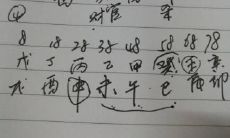 ④ 财官 券
8 18 28 38 48 58 68 78
戊 丁 丙 乙 甲 癸 壬 辛
戌 酉 申 未 午 巳 辰 卯